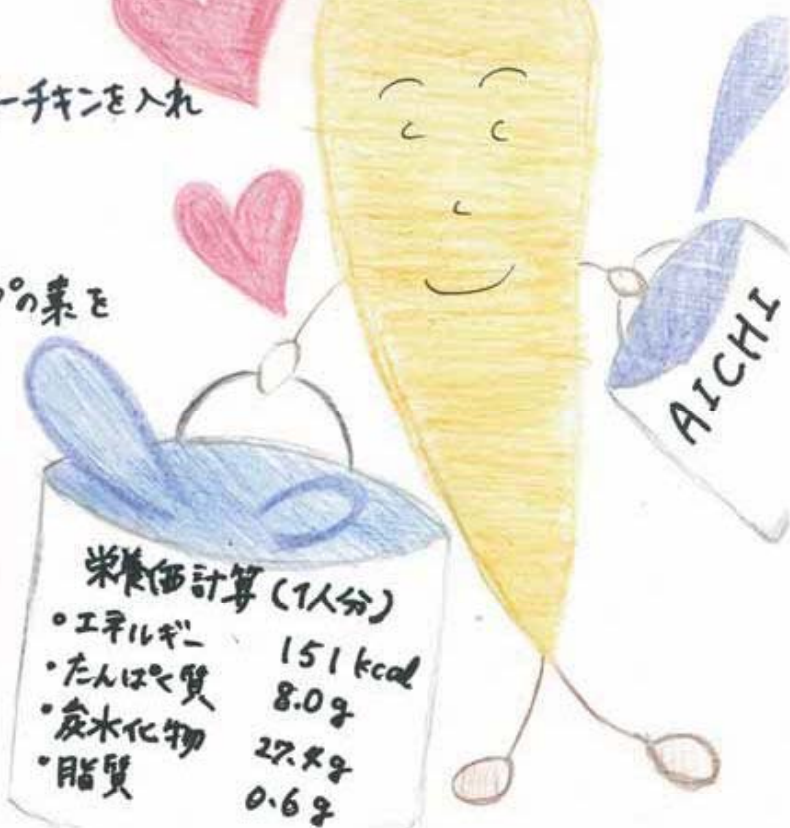 ーチキンを入れ
プの素を
AICHI
栄養価計算(1人分)
・エネルギー 151kcal
・たんぱく質 8.0g
・炭水化物 27.4g
・脂質 0.6g